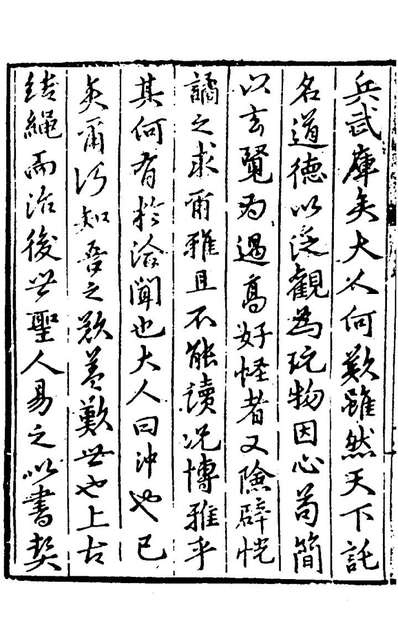 兵武庫矣大人何歎雖然天下託
名道德以泛觀為玩物因心苟簡
以玄覽為過高好怪者又險僻恍
譎之求爾雅且不能讀况博雅乎
其何有於洽聞也大人曰沖也已
矣爾何知吾之歎葢歎世也上古
結繩而治後世聖人易之以書契